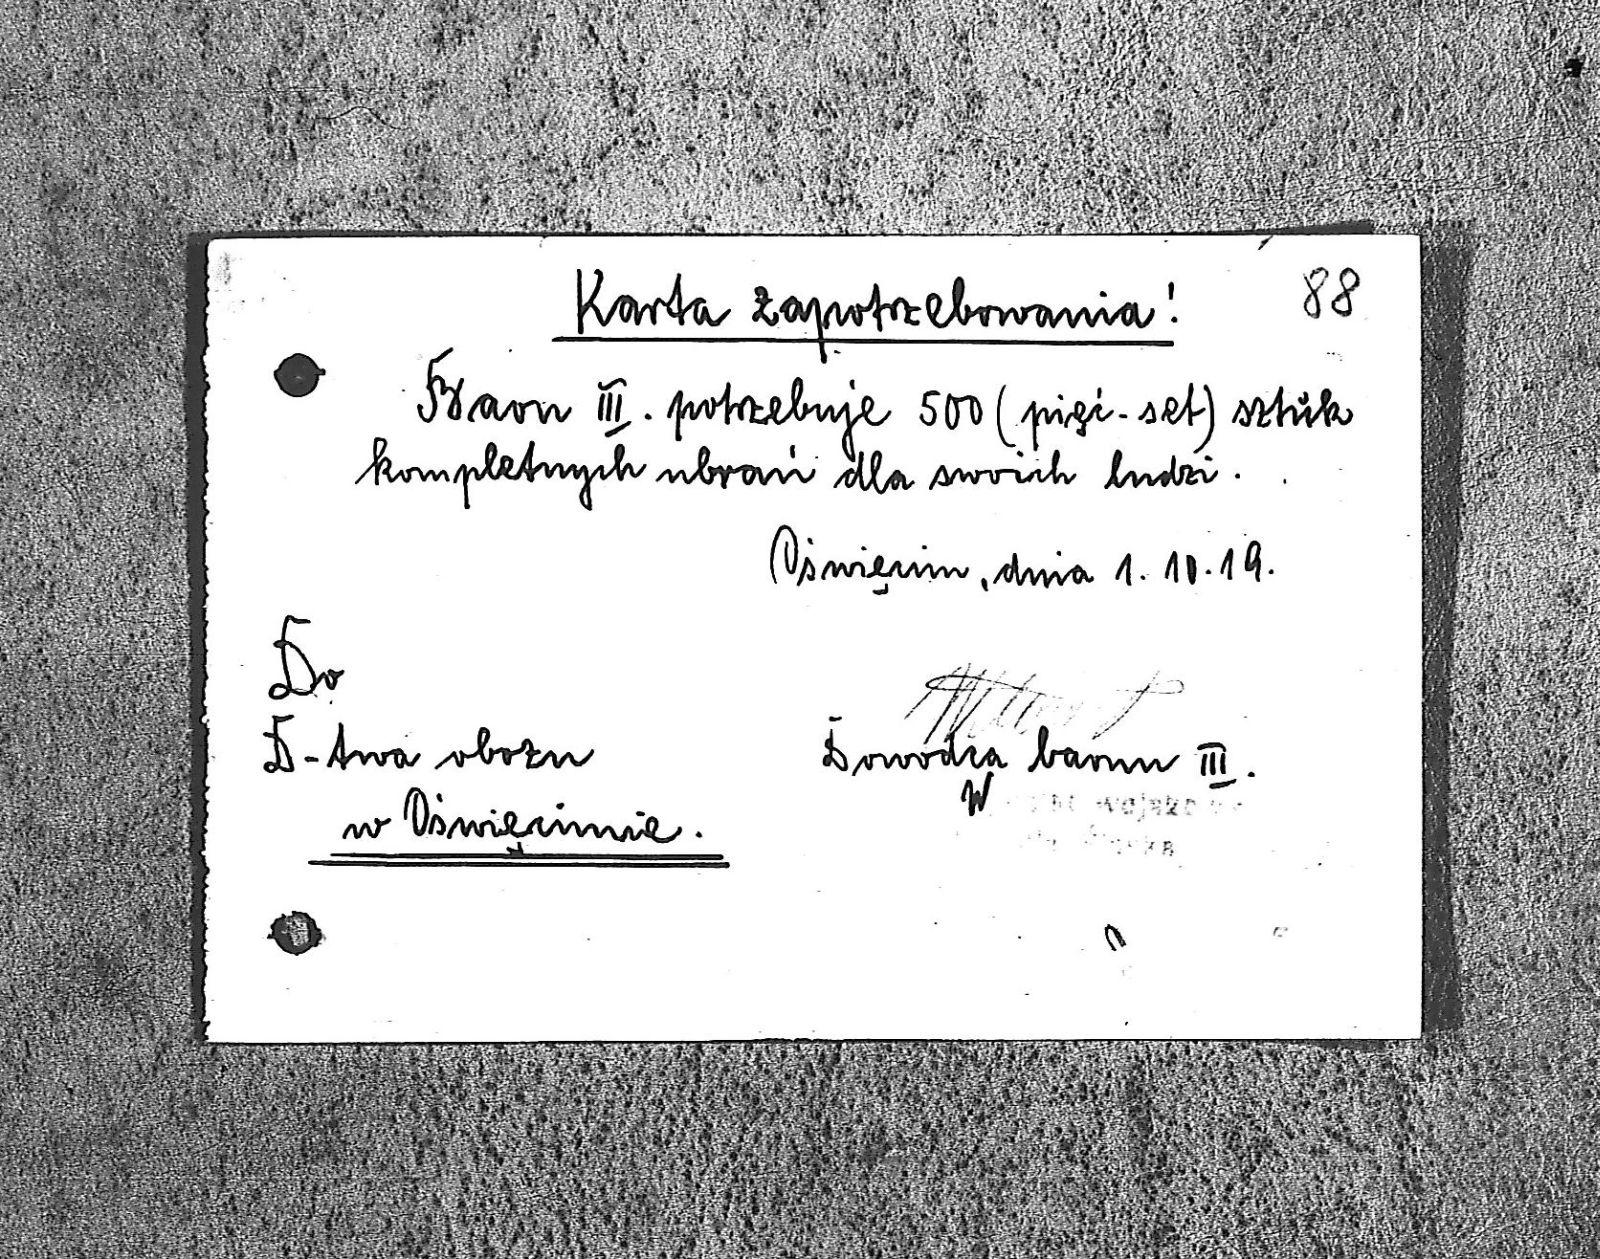 Karta zapotrzebowania! 88
Baon III. potrzebuje 500 (pięć-set) sztuk
kompletnych ubrań dla swoich ludzi.
Oświęcim, dnia 1.10.19.
Do
D-twa obozu
w Oświęcimie.
Dowódca baonu III.
W